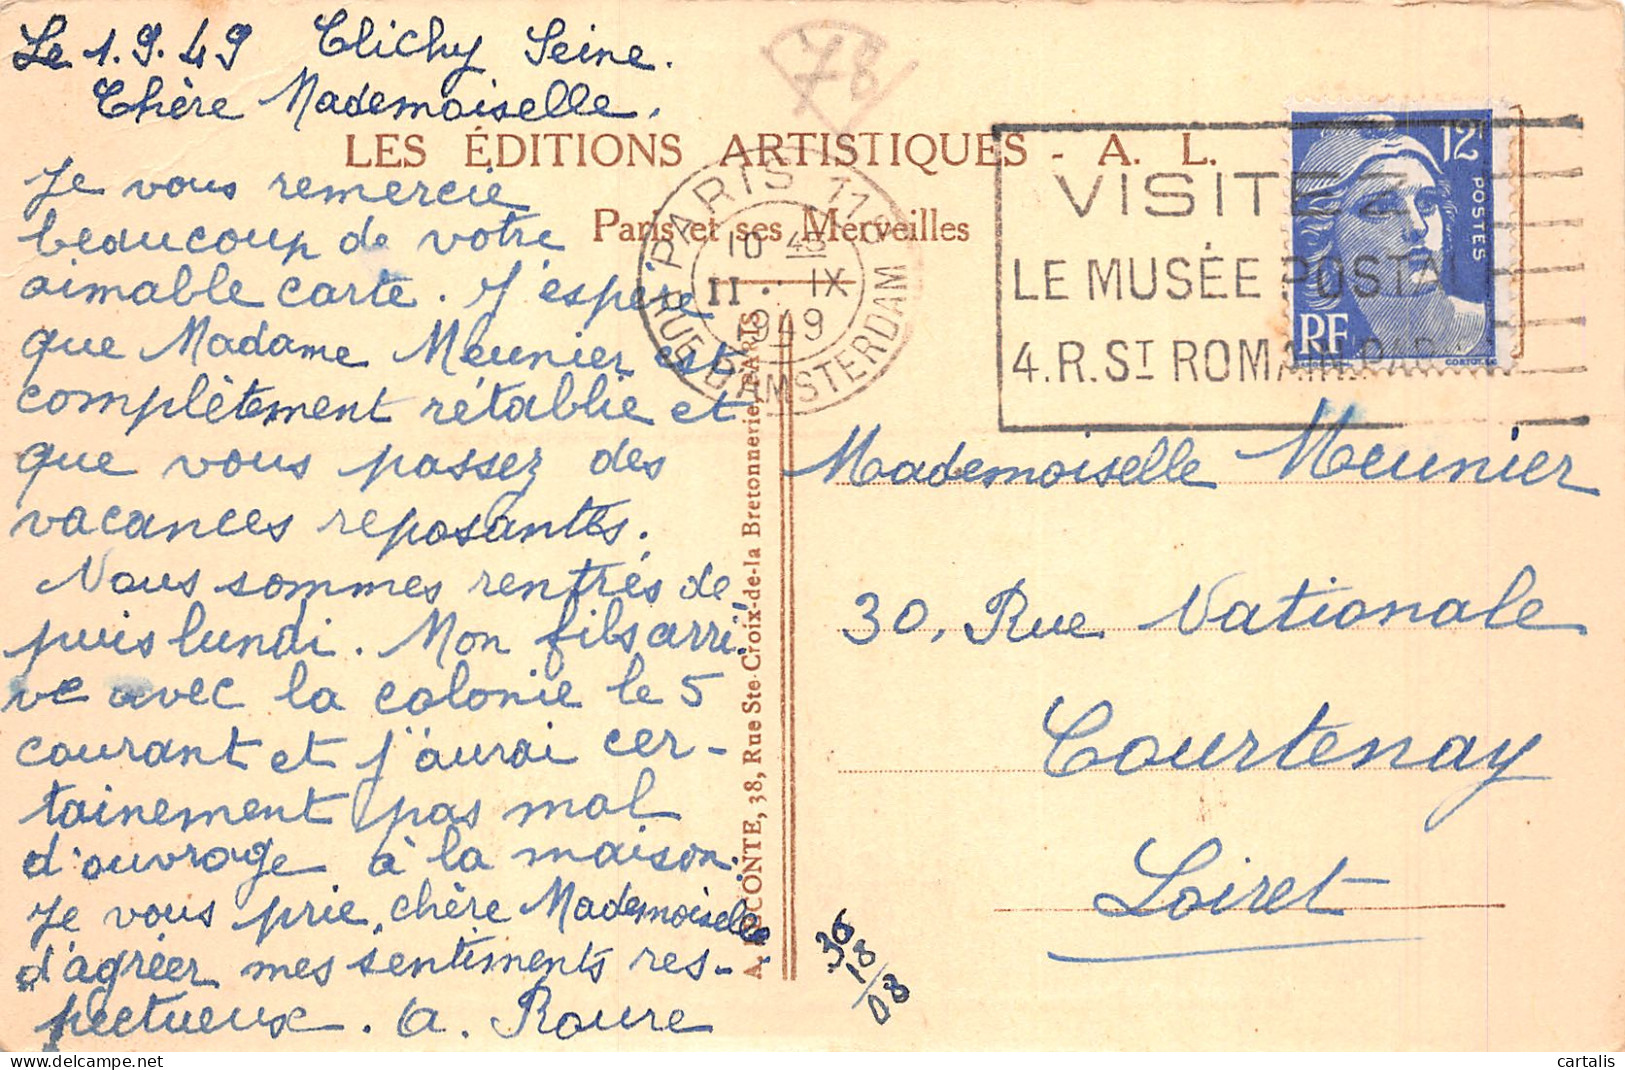 Le 1.9.49 Clichy Seine.
Chère Mademoiselle.
Je vous remercie
beaucoup de votre
aimable carte. J'espère
que Madame Meunier est
complètement rétablie et
que vous passez des
vacances reposantes.
Nous sommes rentrés de
puis lundi. Mon fils arri-
ve avec la colonie le 5
courant et j'aurai cer-
tainement pas mal
d'ouvrage à la maison.
Je vous prie, chère Mademoiselle
d'agréer mes sentiments res-
pectueux. A. Roure
78
LES ÉDITIONS ARTISTIQUES - A. L.
Paris et ses Merveilles
PARIS
10 45
11 · IX
1949
RUE D'AMSTERDAM
VISITEZ
LE MUSÉE POSTAL
4.R.ST ROMAIN.PARIS
12F
POSTES
RF
38, Rue Ste-Croix-de-la Bretonnerie, PARIS
Mademoiselle Meunier
30, Rue Nationale
Courtenay
Loiret
36
18
08
cartalis